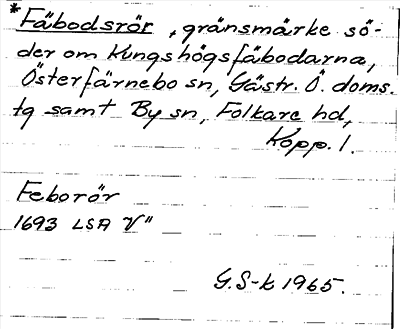 *Fäbodsrör, gränsmärke sö-
der om Kungshögsfäbodarna,
Österfärnebo sn, Gästr. Ö. doms.
tg samt By sn, Folkare hd,
Kopp. l.
Feborör
1693 LSA V"
G.S-k 1965.